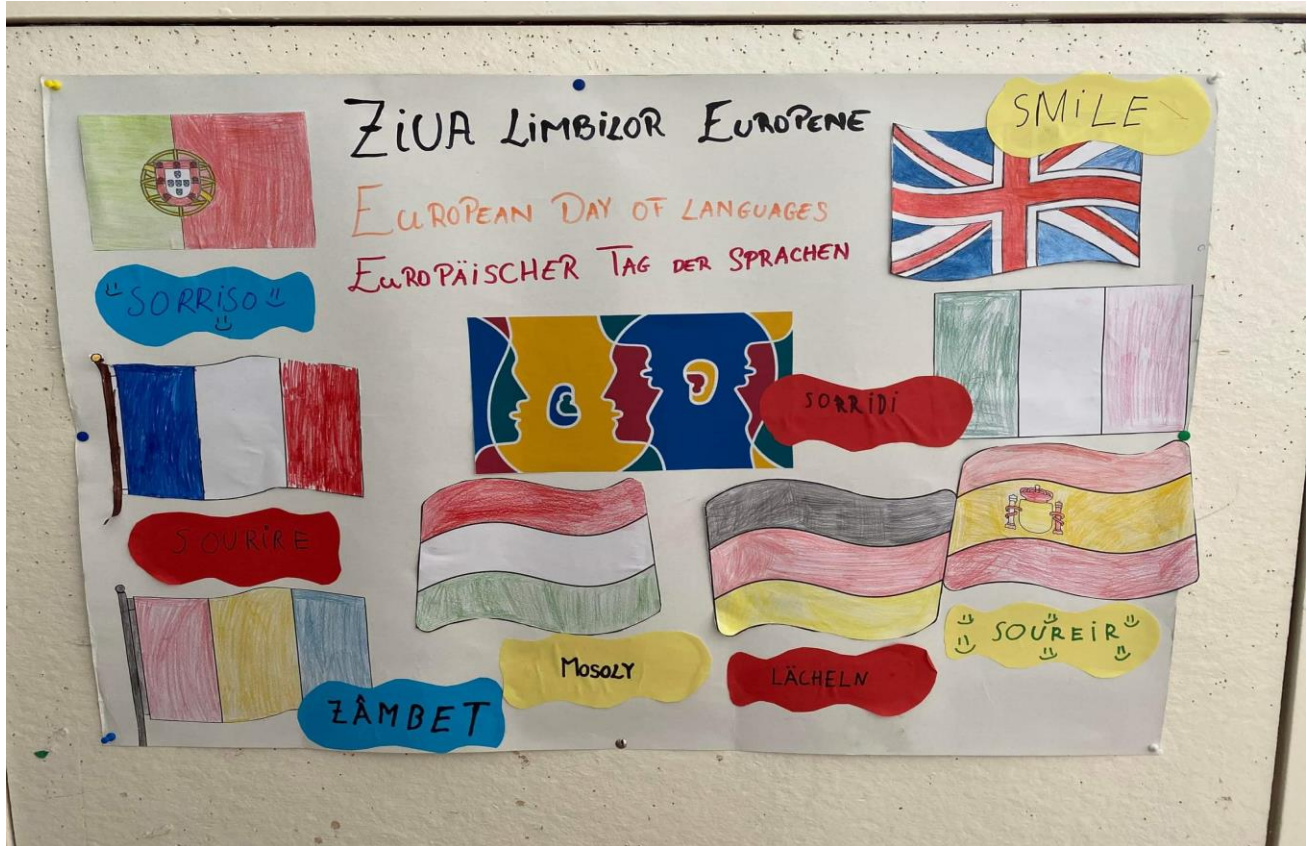 ZiUA LiMBiLOR EUROPENE
EUROPEAN DAY OF LANGUAGES
EUROPÄISCHER TAG DER SPRACHEN
SMiLE
SORRiSO
SORRiDi
SOURiRE
ZÂMBET
MOSOLY
LÄCHELN
SOUREiR